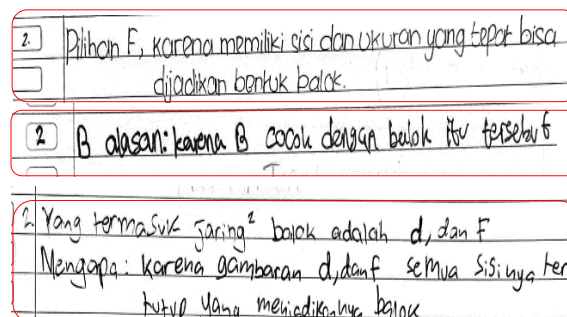 2. Pilihan F, karena memiliki sisi dan ukuran yang tepat bisa
dijadikan bentuk balok.
2 B alasan: karena B cocok dengan balok itu tersebut
2. Yang termasuk jaring² balok adalah d, dan F
Mengapa: karena gambaran d, dan f semua sisinya ter
tutup yang menjadikannya balok